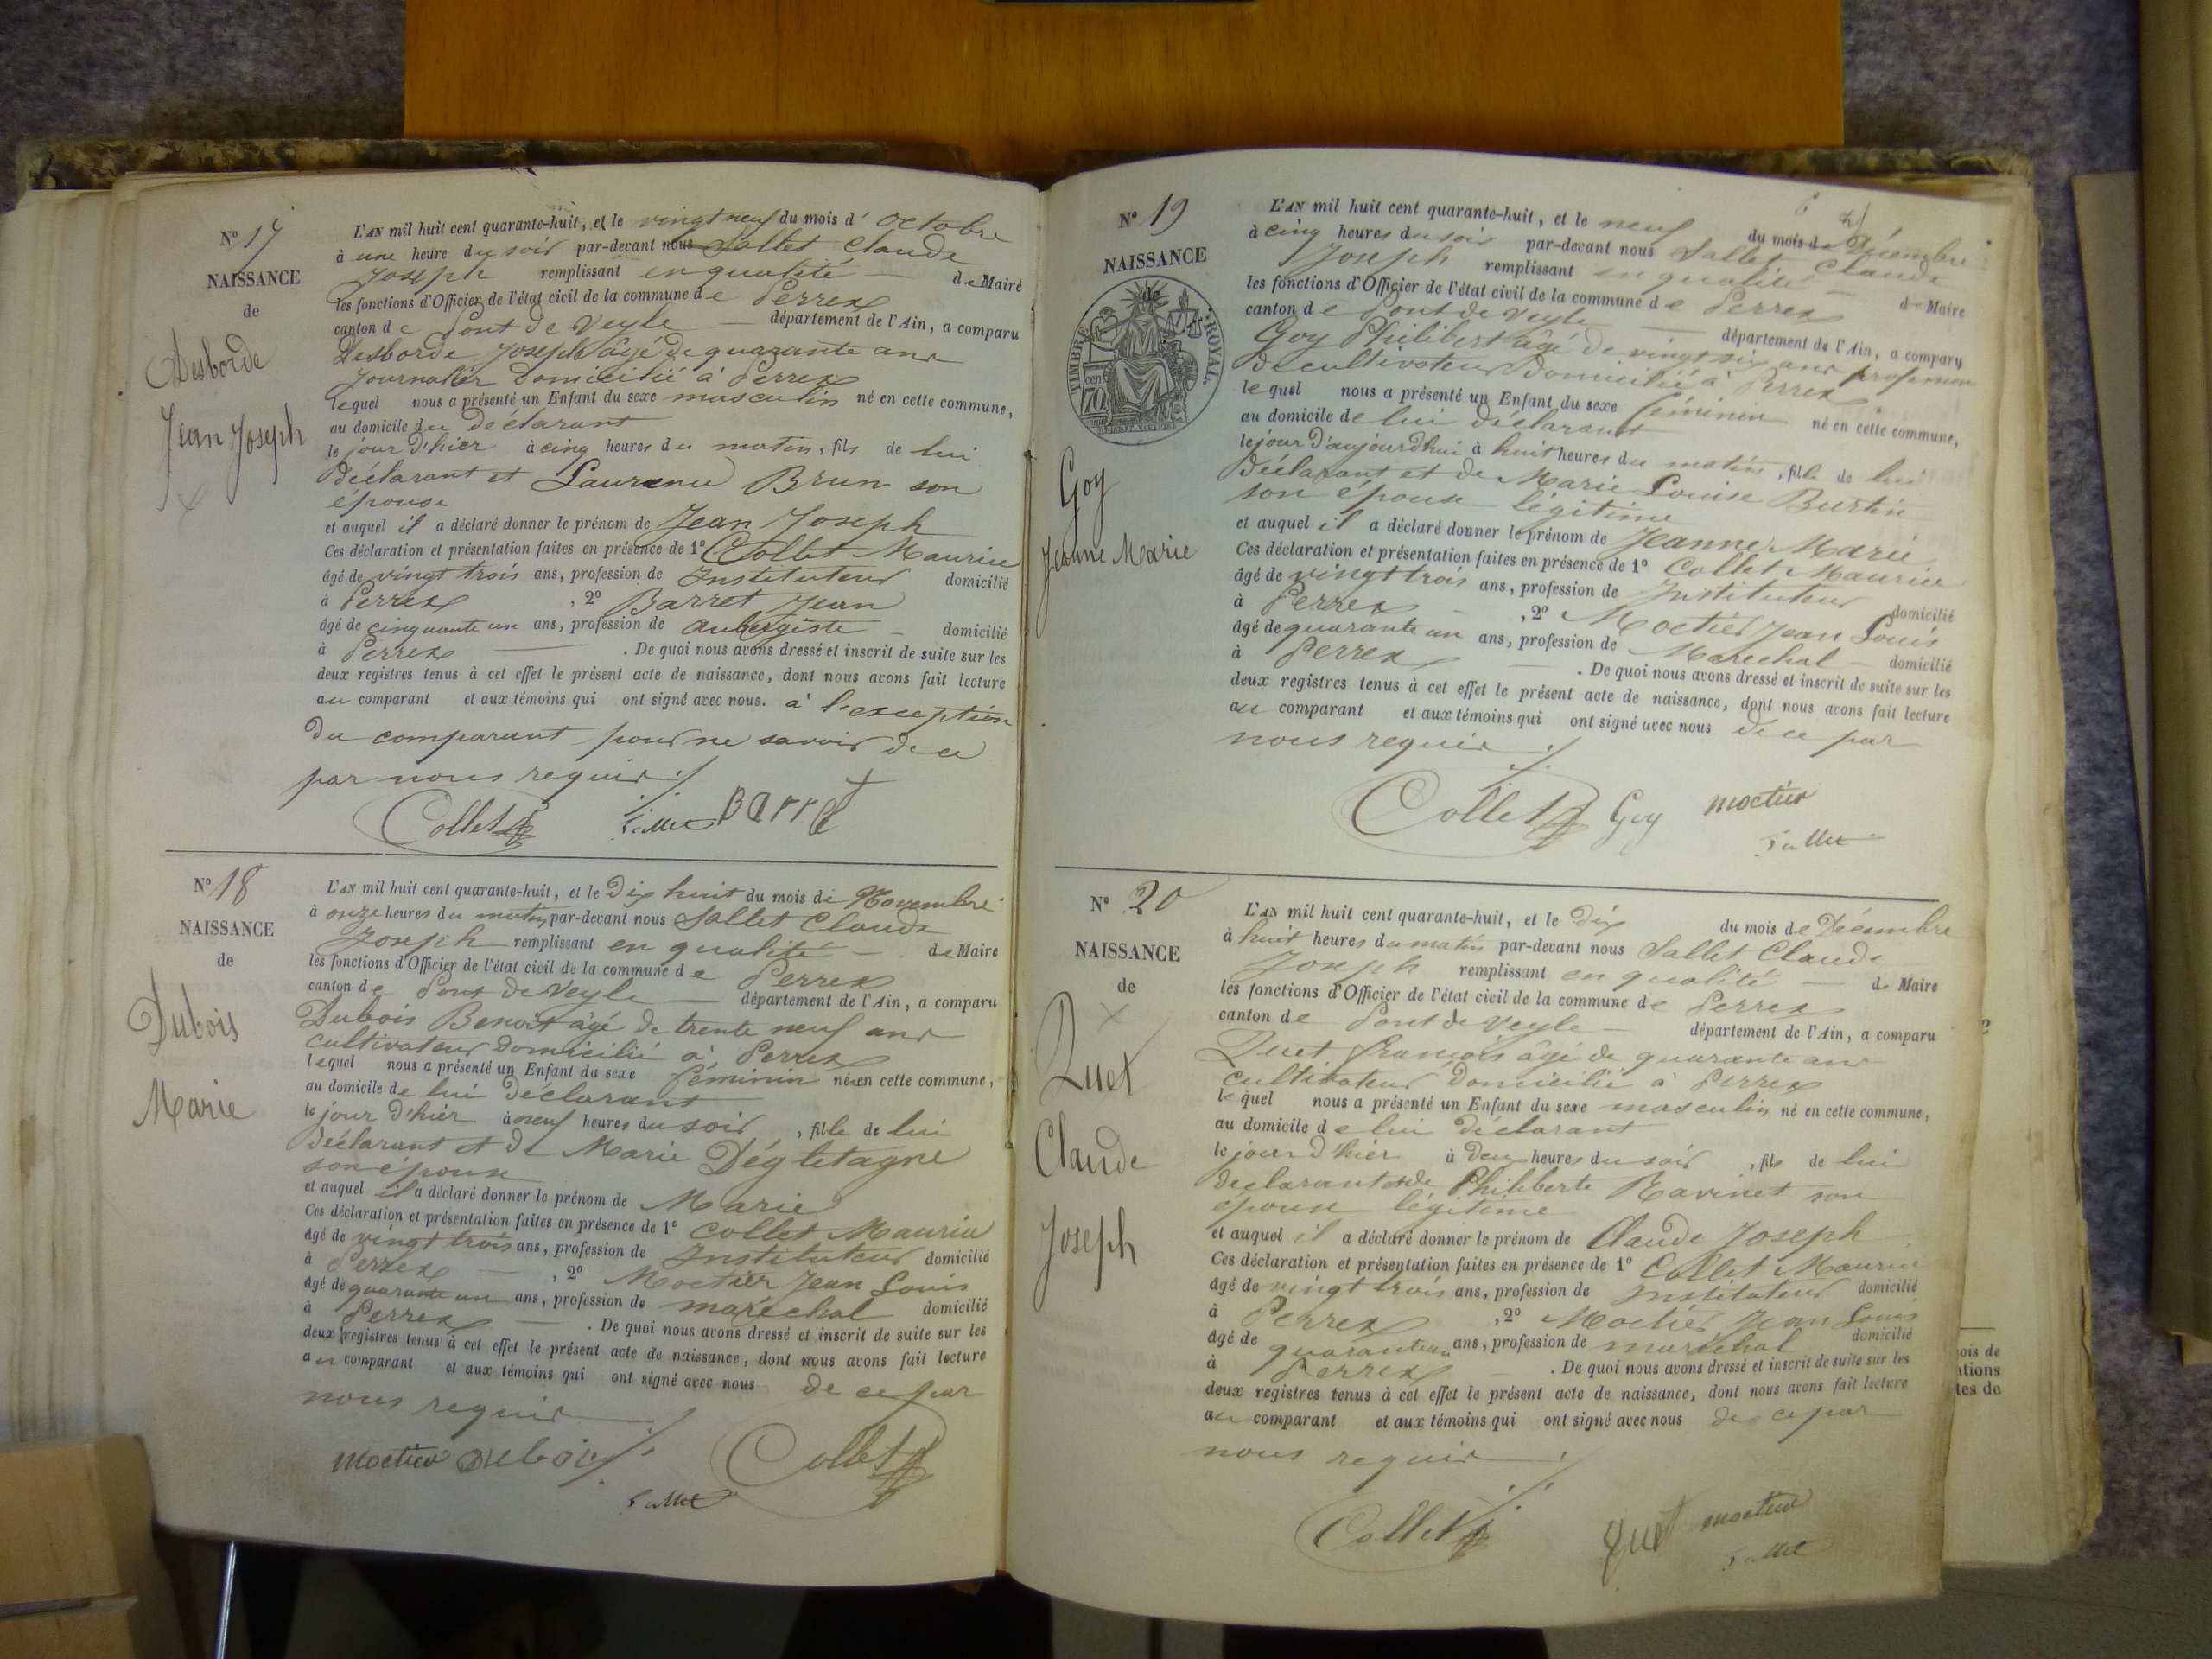 N° 17
NAISSANCE
de
Desborde
Jean Joseph
L'AN mil huit cent quarante-huit, et le vingt neuf du mois d' Octobre
à une heure du soir par-devant nous Sallet Claude
Joseph remplissant en qualité de Maire
les fonctions d'Officier de l'état civil de la commune de Perrex
canton de Pont de Veyle département de l'Ain, a comparu
Desborde Joseph âgé de quarante ans
journalier domicilié à Perrex
lequel nous a présenté un Enfant du sexe masculin né en cette commune,
au domicile du déclarant
le jour d'hier à cinq heures du matin, fils de lui
déclarant et Brun son
épouse
et auquel il a déclaré donner le prénom de Jean Joseph
Ces déclaration et présentation faites en présence de 1° Collet Maurice
âgé de vingt trois ans, profession de Instituteur domicilié
à Perrex , 2° Barret Jean
âgé de cinquante un ans, profession de aubergiste domicilié
à Perrex . De quoi nous avons dressé et inscrit de suite sur les
deux registres tenus à cet effet le présent acte de naissance, dont nous avons fait lecture
au comparant et aux témoins qui ont signé avec nous. à l'exception
du comparant pour ne savoir de ce
par nous requis ./.
Collet Sallet Barret
N° 18
NAISSANCE
de
Dubois
Marie
L'AN mil huit cent quarante-huit, et le Dix huit du mois de Novembre
à onze heures du matin par-devant nous Sallet Claude
Joseph remplissant en qualité de Maire
les fonctions d'Officier de l'état civil de la commune de Perrex
canton de Pont de Veyle département de l'Ain, a comparu
Dubois Benoit âgé de trente neuf ans
cultivateur domicilié à Perrex
lequel nous a présenté un Enfant du sexe féminin né en cette commune,
au domicile de lui déclarant
le jour d'hier à neuf heures du soir , fille de lui
déclarant et de Marie Dégletagne
son épouse
et auquel il a déclaré donner le prénom de Marie
Ces déclaration et présentation faites en présence de 1° Collet Maurice
âgé de vingt trois ans, profession de Instituteur domicilié
à Perrex , 2° Moctier Jean Louis
âgé de quarante un ans, profession de maréchal domicilié
à Perrex . De quoi nous avons dressé et inscrit de suite sur les
deux registres tenus à cet effet le présent acte de naissance, dont nous avons fait lecture
au comparant et aux témoins qui ont signé avec nous de ce par
nous requis ./.
Moctier Dubois Collet
Sallet
N° 19
NAISSANCE
de
TIMBRE ROYAL
70 cent
Goy
Jeanne Marie
L'AN mil huit cent quarante-huit, et le neuf du mois de Décembre
à cinq heures du soir par-devant nous Sallet Claude
Joseph remplissant en qualité de Maire
les fonctions d'Officier de l'état civil de la commune de Perrex
canton de Pont de Veyle département de l'Ain, a comparu
Goy Philibert âgé de vingt six ans profession
de cultivateur domicilié à Perrex
lequel nous a présenté un Enfant du sexe féminin né en cette commune,
au domicile de lui déclarant
le jour d'aujourd'hui à huit heures du matin, fille de lui
déclarant et de Marie Louise Burtin
son épouse légitime
et auquel il a déclaré donner le prénom de Jeanne Marie
Ces déclaration et présentation faites en présence de 1° Collet Maurice
âgé de vingt trois ans, profession de Instituteur domicilié
à Perrex , 2° Moctier Jean Louis
âgé de quarante un ans, profession de Maréchal domicilié
à Perrex . De quoi nous avons dressé et inscrit de suite sur les
deux registres tenus à cet effet le présent acte de naissance, dont nous avons fait lecture
au comparant et aux témoins qui ont signé avec nous de ce par
nous requis ./.
Collet Goy Moctier
Sallet
N° 20
NAISSANCE
de
Quet
Claude
Joseph
L'AN mil huit cent quarante-huit, et le dix du mois de Décembre
à huit heures du matin par-devant nous Sallet Claude
Joseph remplissant en qualité de Maire
les fonctions d'Officier de l'état civil de la commune de Perrex
canton de Pont de Veyle département de l'Ain, a comparu
Quet françois âgé de quarante ans
cultivateur domicilié à Perrex
lequel nous a présenté un Enfant du sexe masculin né en cette commune,
au domicile de lui déclarant
le jour d'hier à deux heures du soir , fils de lui
déclarant et de Philiberte Ravinet son
épouse légitime
et auquel il a déclaré donner le prénom de Claude Joseph
Ces déclaration et présentation faites en présence de 1° Collet Maurice
âgé de vingt trois ans, profession de Instituteur domicilié
à Perrex , 2° Moctier Jean Louis
âgé de quarante un ans, profession de maréchal domicilié
à Perrex . De quoi nous avons dressé et inscrit de suite sur les
deux registres tenus à cet effet le présent acte de naissance, dont nous avons fait lecture
au comparant et aux témoins qui ont signé avec nous de ce par
nous requis ./.
Collet Quet Moctier
Sallet